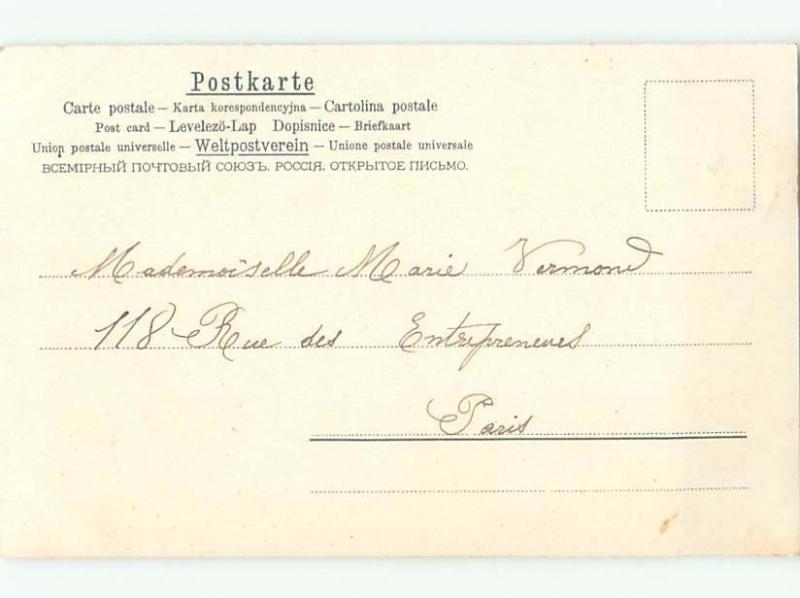 Postkarte
Carte postale – Karta korespondencyjna – Cartolina postale
Post card – Levelező-Lap Dopisnice – Briefkaart
Union postale universelle – Weltpostverein – Unione postale universale
ВСЕМІРНЫЙ ПОЧТОВЫЙ СОЮЗЪ. РОССІЯ. ОТКРЫТОЕ ПИСЬМО.
Mademoiselle Marie Vermond
118 Rue des Entrepreneurs
Paris